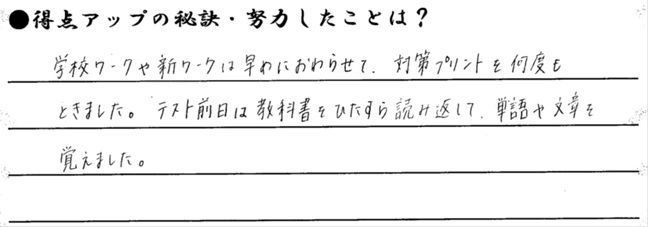 ●得点アップの秘訣・努力したことは？
学校ワークや新ワークは早めにおわらせて、対策プリントを何度も
ときました。テスト前日は教科書をひたすら読み返して、単語や文章を
覚えました。